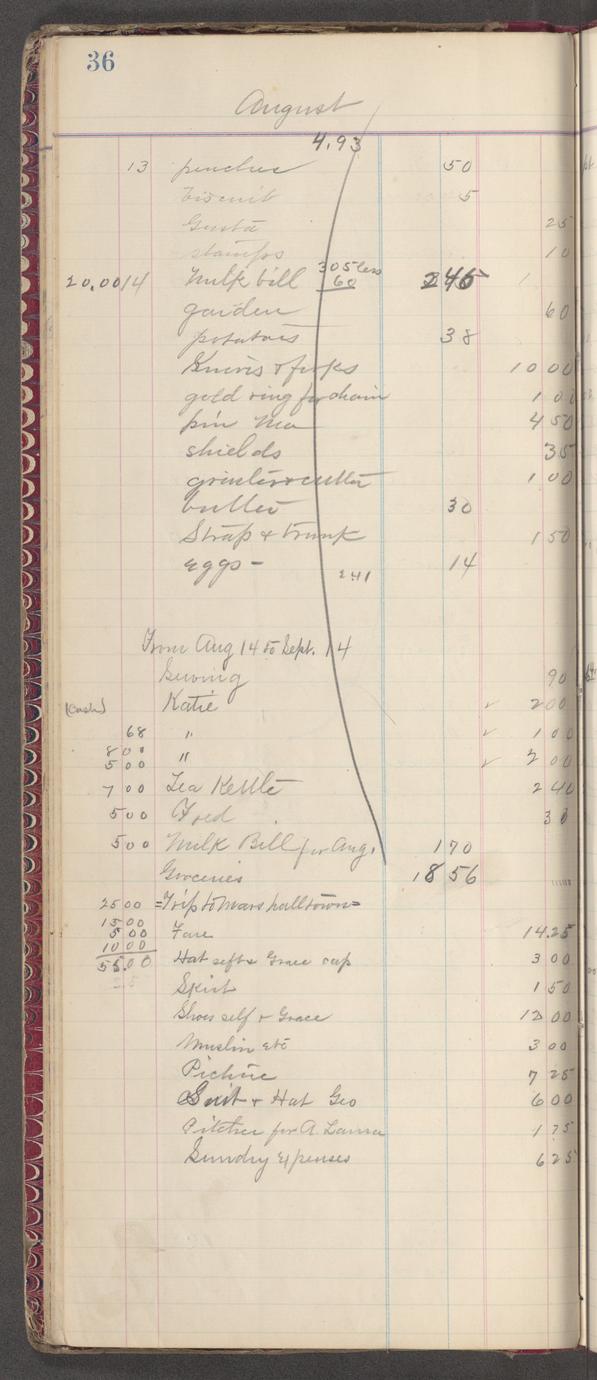 36
August
4.93
13 peaches 50
biscuit 5
Gusta 25
stamps 10
20.00 14 Milk bill 305 less 60 245
garden 60
potatoes 38
Knives & forks 10 00
gold ring for chain 1 00
pin Ma 4 50
shields 35
1 00
butter 30
Strap & trunk 1 50
eggs - 241 14
From Aug 14 to Sept. 14
Sewing 90
(Cash) Katie ✓ 2 00
68 " ✓ 1 00
8 00 " ✓ 2 00
5 00
7 00 Tea Kettle 2 40
5 00 Fred 30
5 00 Milk Bill for Aug. 1 70
Groceries 18 56
25 00 =Trip to Marshalltown=
15 00
5 00 Fare 14.25
10 00
55.00 Hat self & Grace cap 3 00
Skirt 1 50
Shoes self & Grace 12 00
Muslin etc 3 00
Picture 7 25
Suit & Hat Geo 6 00
Pitcher for A. Laura 1 75
Sundry expenses 6 25